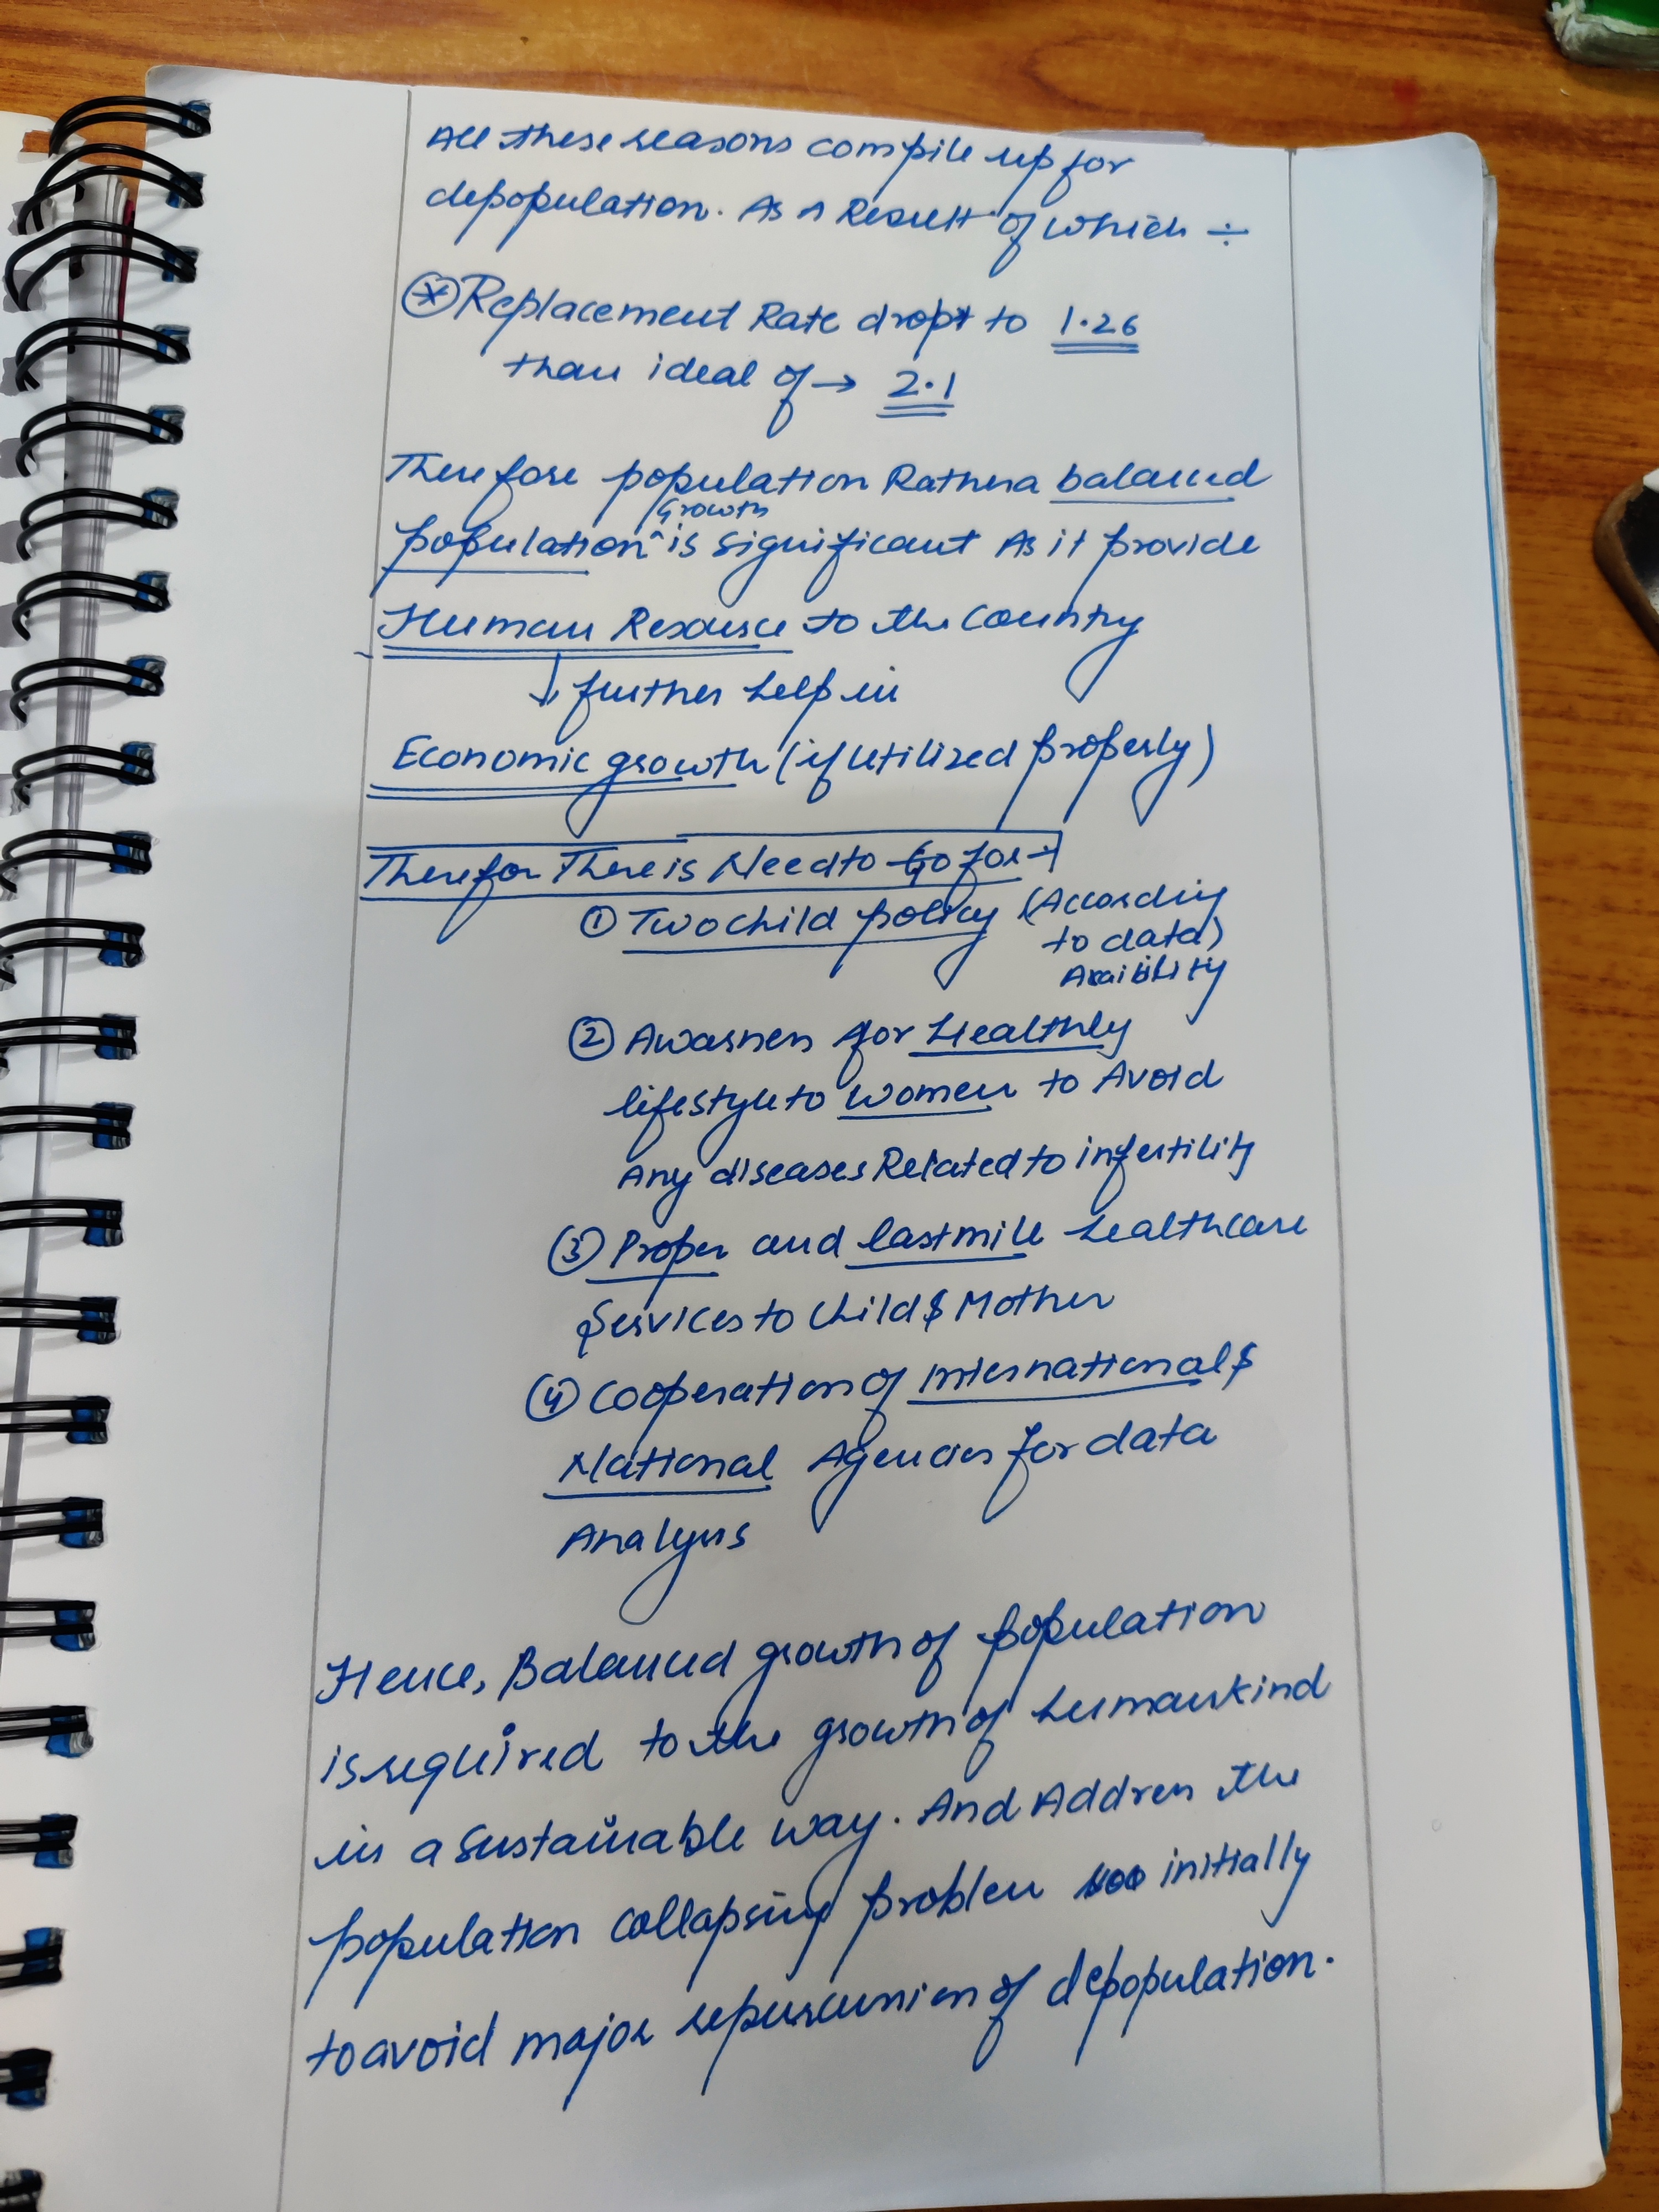 All these reasons compile up for
depopulation. As a Result of which ÷
⊛ Replacement Rate dropt to 1.26
than ideal of → 2.1
Therefore population Rathera balanced
population ^Growth is significant As it provide
Human Resource to the Country
↓ further help in
Economic growth (if utilized properly)
Therefor There is Need to Go for →
① Two child policy (According
to data)
Avaiblity
② Awarness for Healthly
lifestyle to women to Avoid
Any diseases Related to infertility
③ Proper and last mile healthcare
Services to Child & Mother
④ Cooperation of international &
National Agencies for data
Analysis
Hence, Balanced growth of population
is required to the growth of humankind
in a sustainable way. And Address the
population collapsing problem initially
to avoid major of depopulation.